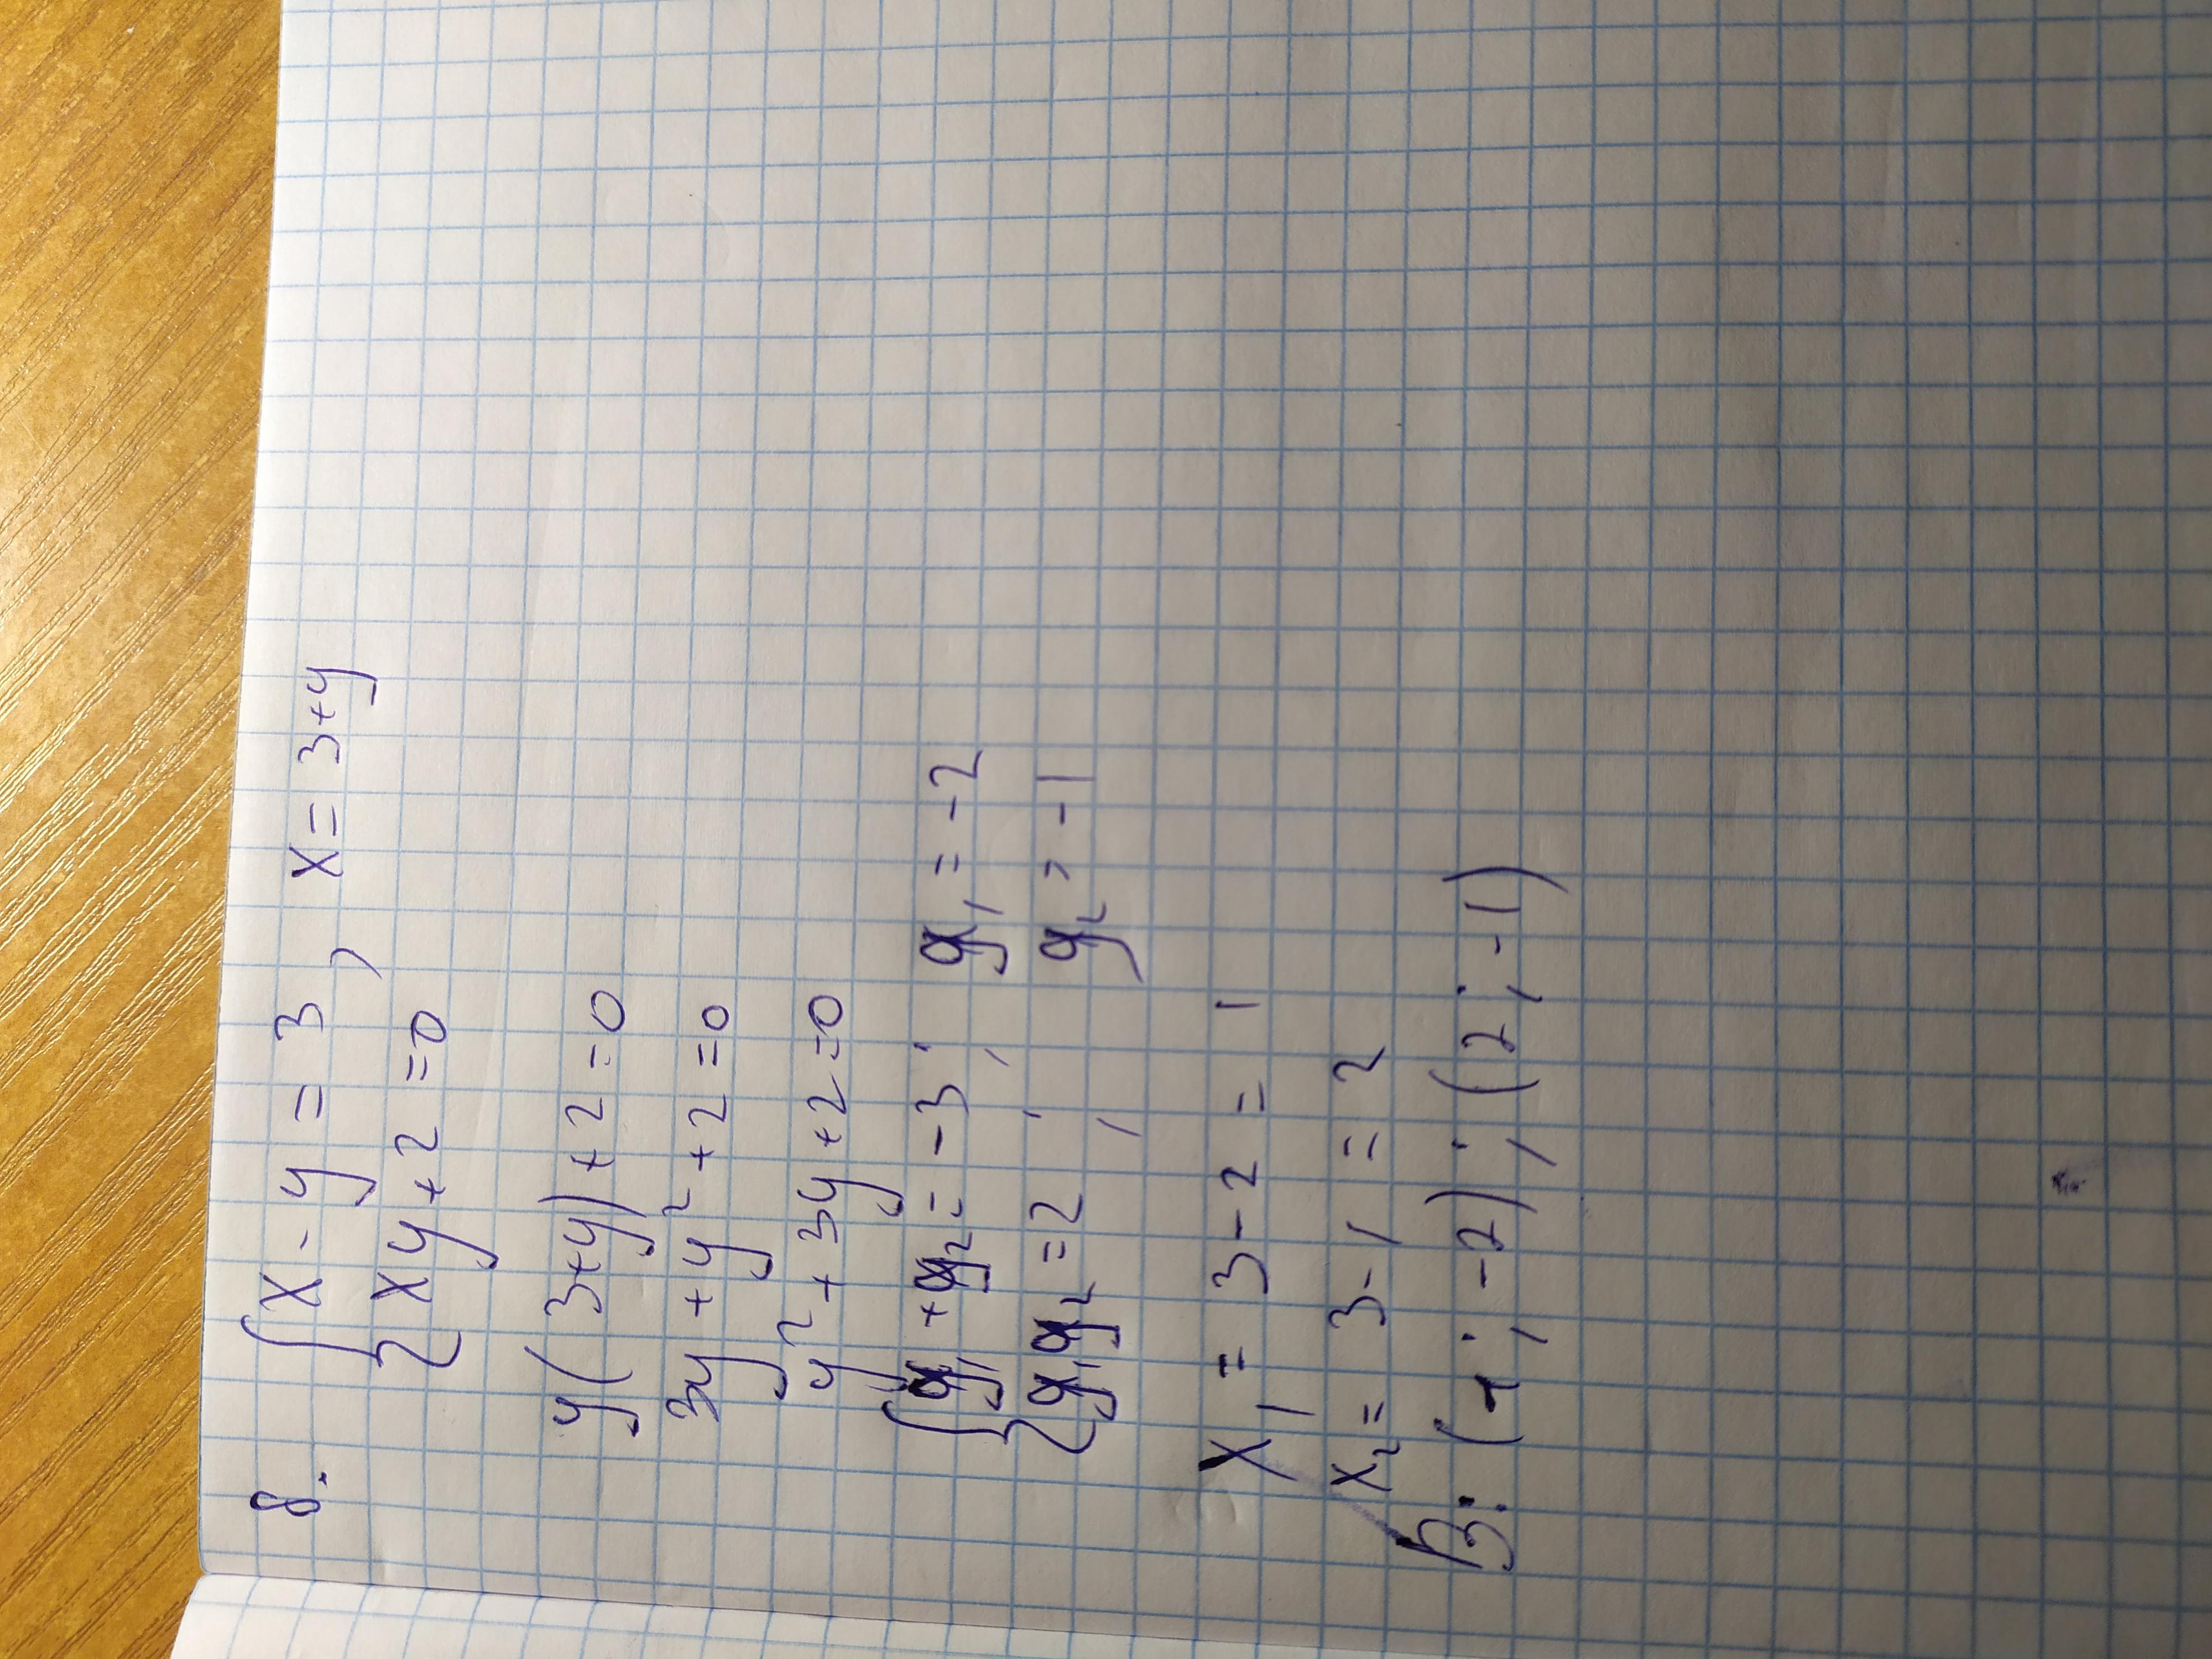 8. { x - y = 3 , x = 3+y
{ xy + 2 = 0
y(3+y) + 2 = 0
3y + y² + 2 = 0
y² + 3y + 2 = 0
{ y₁ + y₂ = -3 ; y₁ = -2
{ y₁y₂ = 2 ; y₂ = -1
x₁ = 3 - 2 = 1
x₂ = 3 - 1 = 2
В: (1 ; -2) ; (2 ; -1)